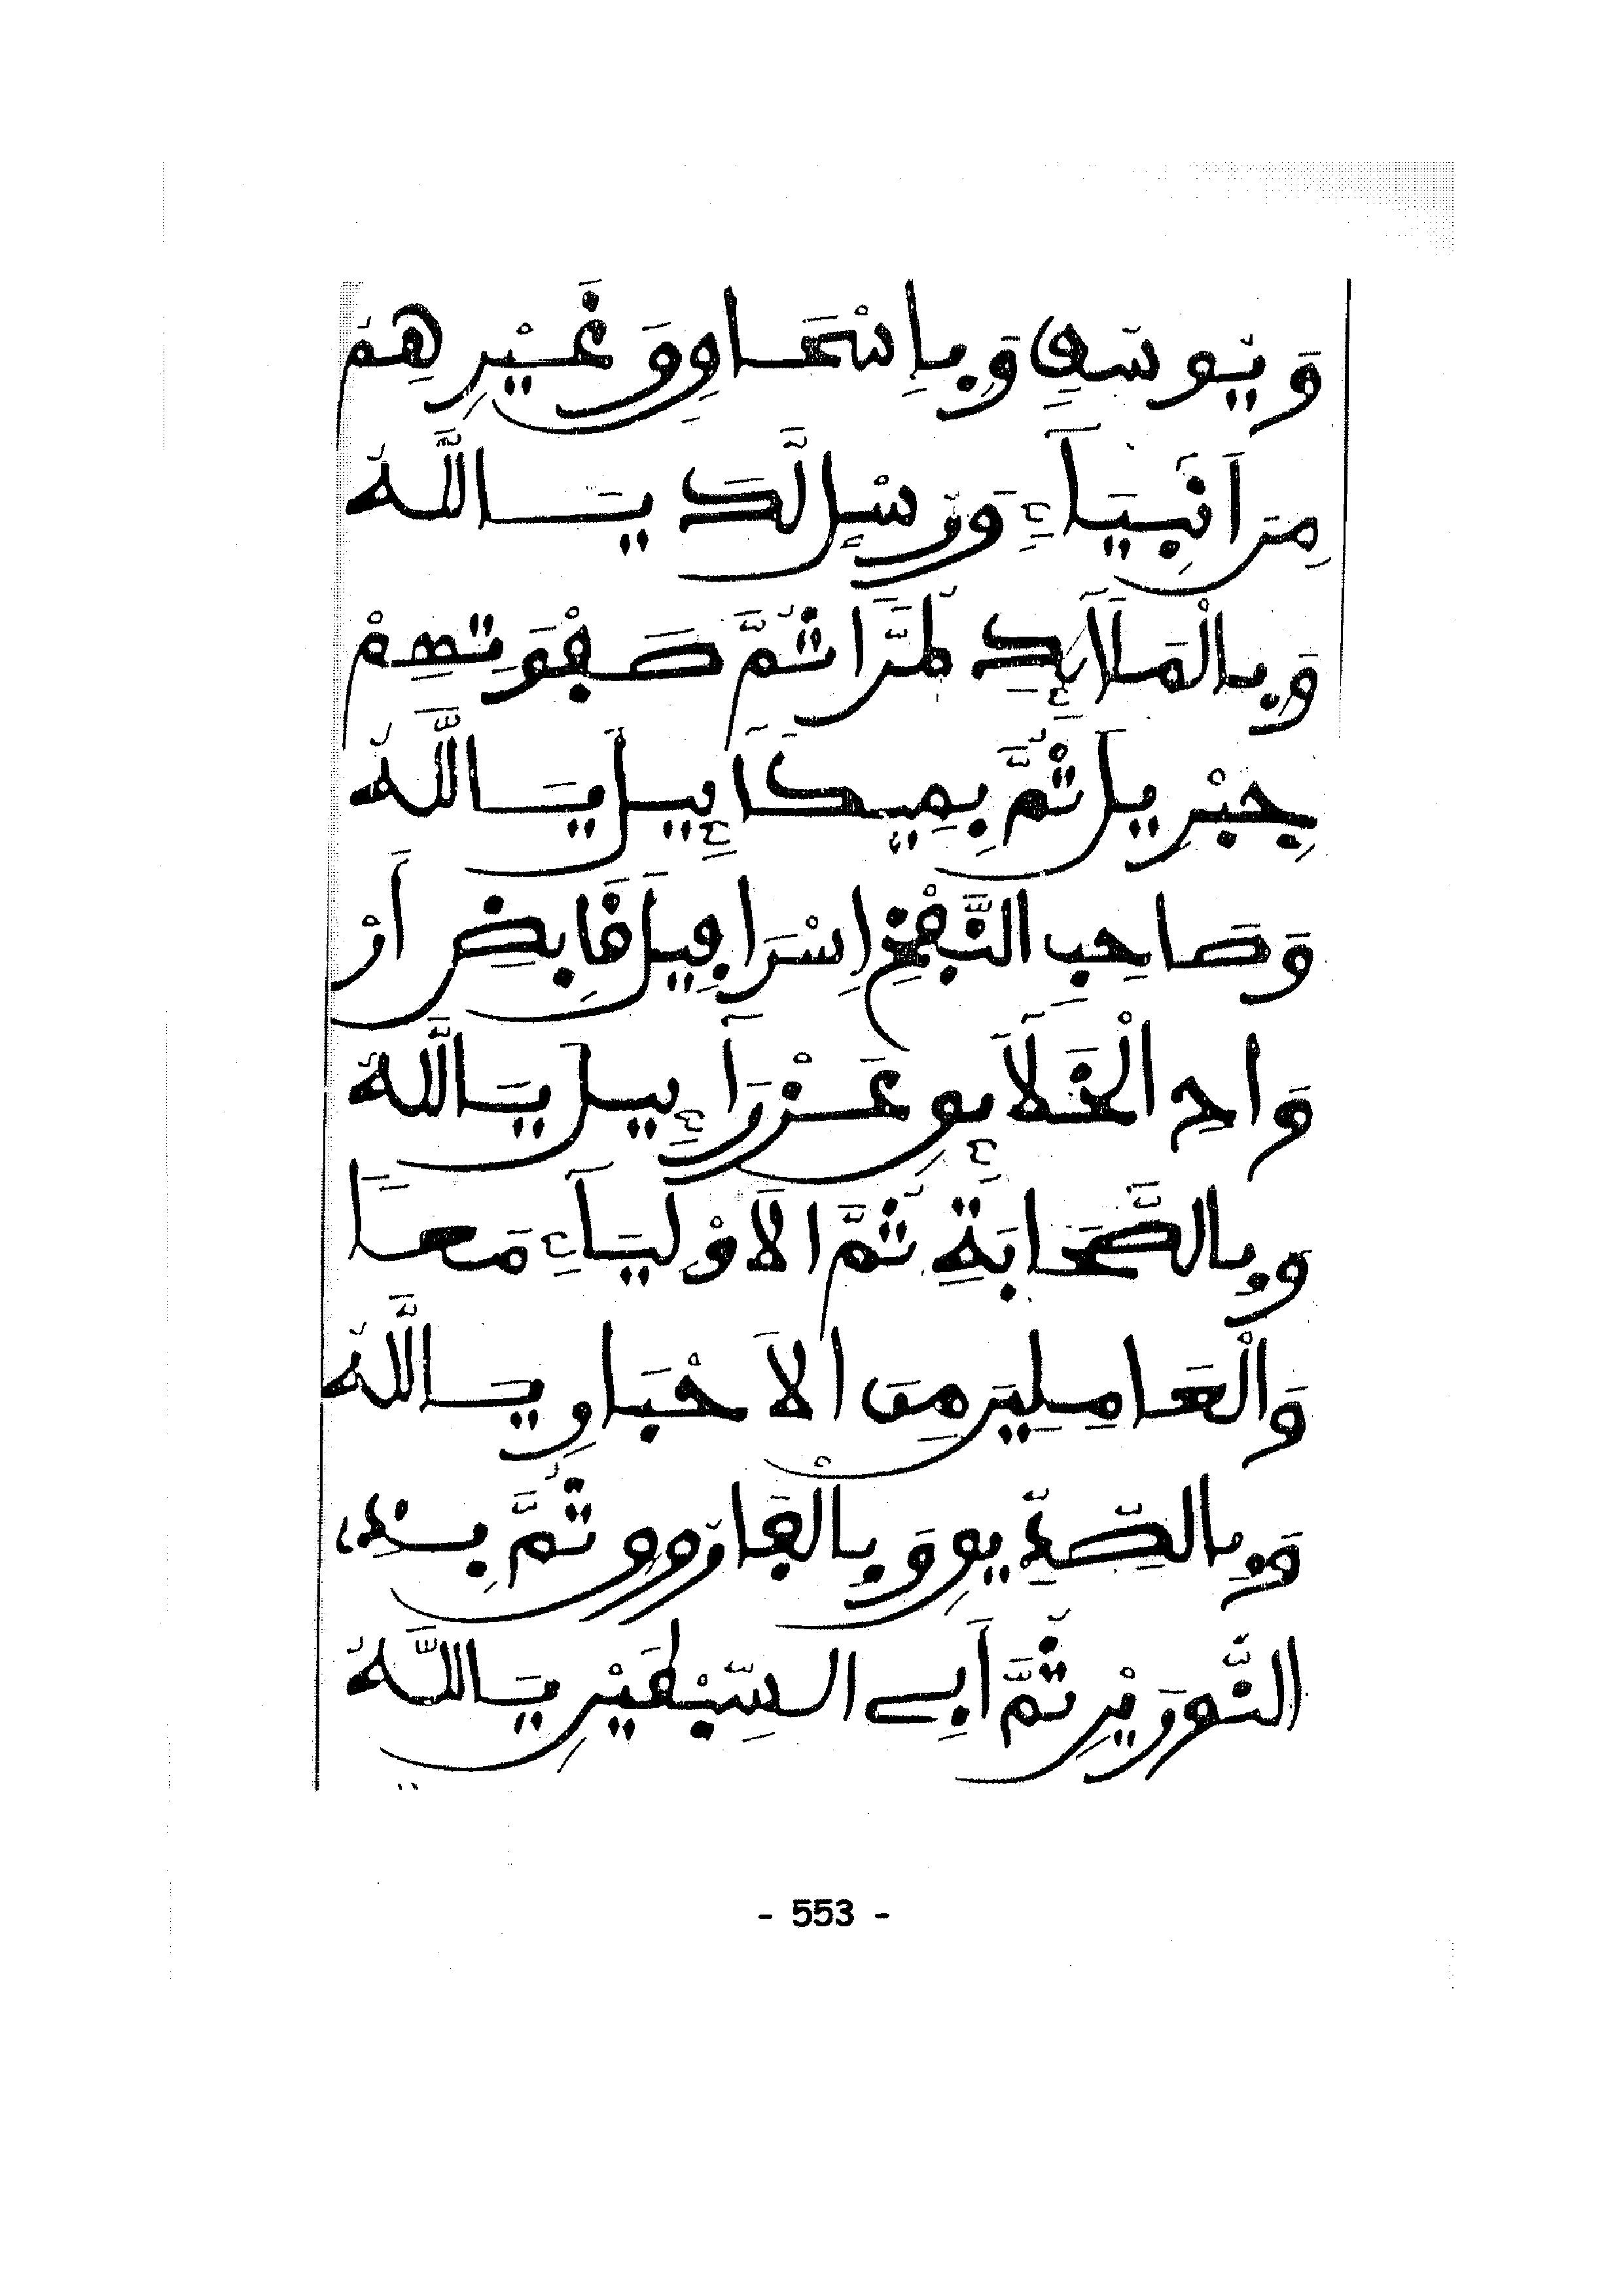 وَيُوسُفٍ وَبِإِسْحَاقٍ وَغَيْرِهِمُ
مِنَ اَنْبِيَآءٍ وَرُسْلٍ لَّكَ يَـاللَّـهُ
وَبِالْمَلَآئِكِ طُرًّا ثُمَّ صَفْوَتِهِمْ
جِبْرِيلَ ثُمَّ بِمِيكَآئِيلَ يَـاللَّهُ
وَصَاحِبِ النَّفْخِ إِسْرَافِيلَ قَابِضِ أَرْ
وَاحِ الْخَلَآئِقِ عَزْرَآئِيلَ يَاللَّهُ
وَبِالصَّحَابَةِ ثُمَّ الَاوْلِيَآءِ مَعًا
وَالْعَامِلِينَ مِنَ الَاحْبَارِ يَـاللَّهُ
وَبِالصِّدِّيقِ وَبِالْفَارُوقِ ثُمَّ بِذِى
النُّورَيْنِ ثُمَّ أَبِى السِّبْطَيْنِ يَـاللَّهُ
- 553 -